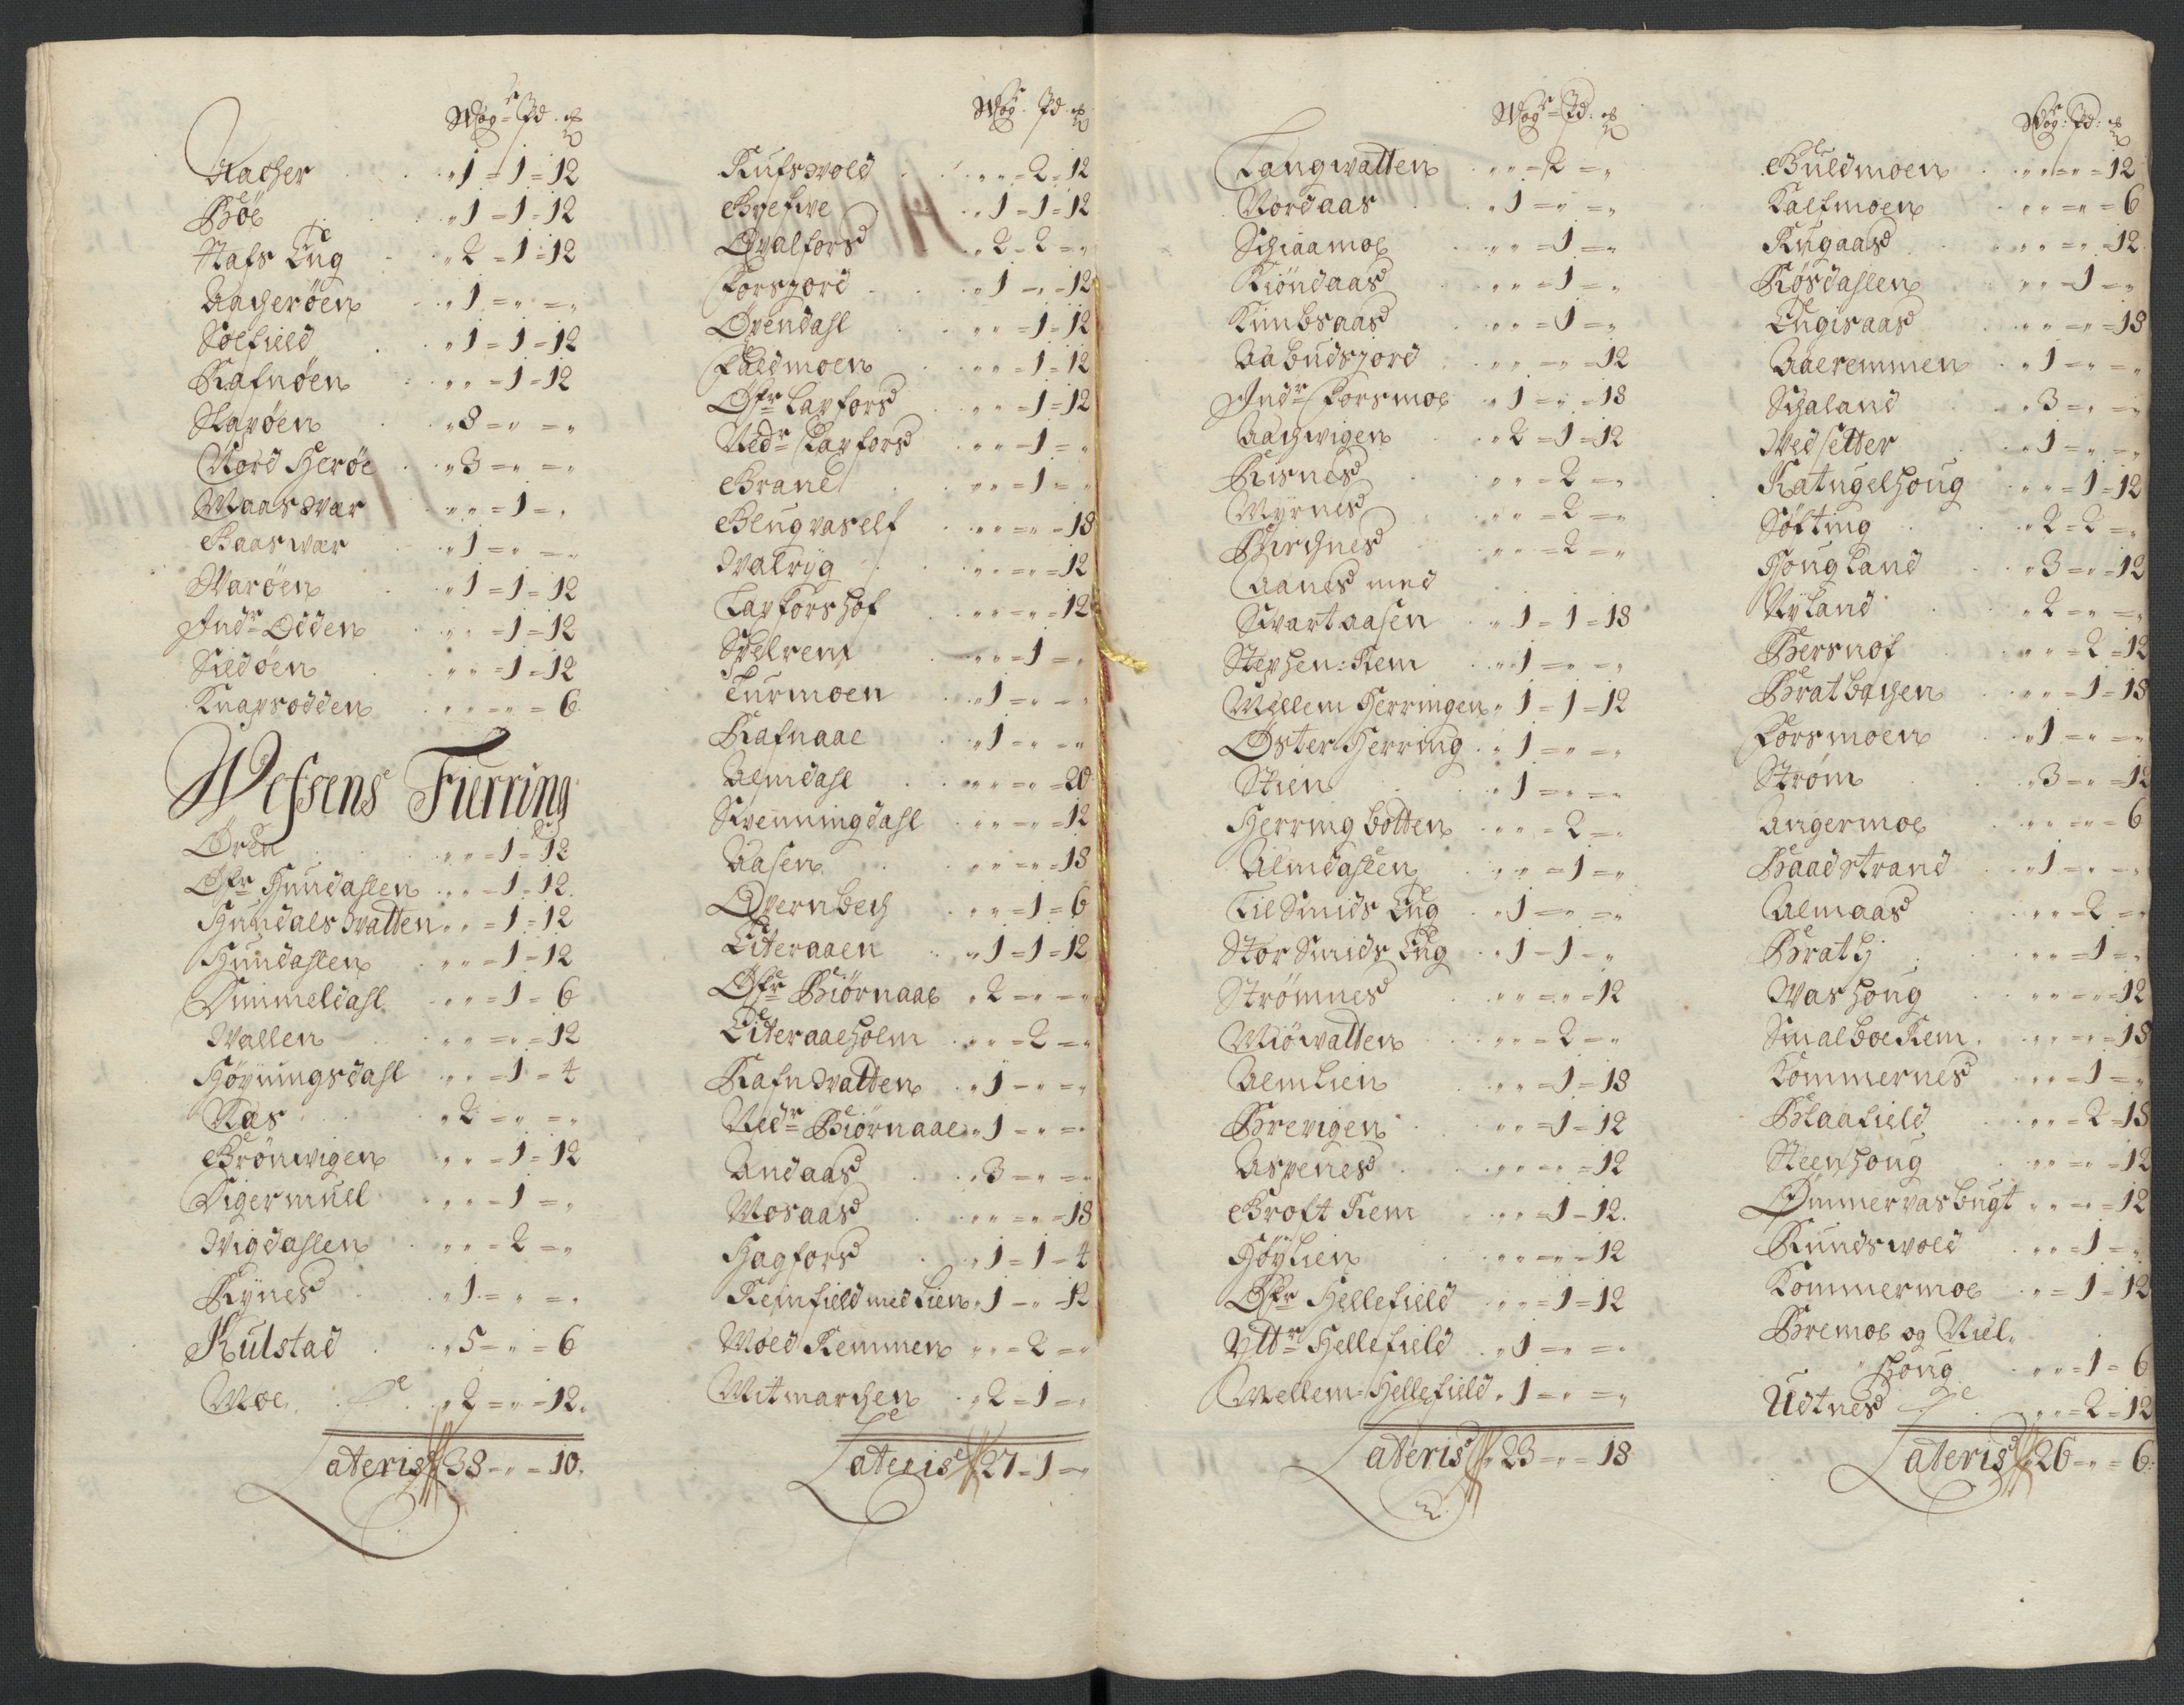 Wog: Pd: ℔
Aacher . . „ 1 = 1 = 12
Böe . . „ 1 = 1 = 12
Stafs Eng . „ 2 = 1 = 12
Aacherøen . „ 1 = „ = „
Solfield . „ 1 = 1 = 12
Rafnøen . „ „ = 1 = 12
Sløyøen . „ 8 = „ = „
Nord Herøe . „ 3 = „ = „
Maaswær . „ „ = 1 = „
Baaswær . „ 1 = „ = „
Warøen . „ 1 = 1 = 12
Indr Odden . „ „ = 1 = 12
Sildøen . „ „ = 1 = 12
Knapsodden . „ „ = „ = 6
Wefsens Fierring
Øren . „ „ = 1 = 12
Ofr Hundahlen . „ „ = 1 = 12
Hundals Watten „ „ = 1 = 12
Hundahlen „ „ = 1 = 12
Dimmeldahl „ „ = 1 = 6
Wallen „ „ = „ = 12
Høyningsdahl „ „ = 1 = 4
Næs „ 2 = „ = „
Brønwigen „ „ = 1 = 12
Digermuel „ „ = 1 = „
Wigdahlen „ „ = 2 = „
Rynes „ 1 = „ = „
Kulstad „ 5 = „ = 6
Moe „ 2 = „ = 12
Lateris 38 = „ = 10
Wog: Pd: ℔
Kufswold „ „ = 2 = 12
Grefwe „ 1 = 1 = 12
Qvalfors „ 2 = 2 = „
Forsjord „ 1 = „ = 12
Øyendahl „ „ = 1 = 12
Fældmoen „ „ = 1 = 12
Ofr Laxfors „ „ = 1 = 12
Nedr Laxfors „ „ = 1 = „
Grane „ „ = 1 = „
Blugvaself „ „ = „ = 18
Walryg „ „ = „ = 12
Laxforshof „ „ = „ = 12
Svelrem „ „ = 1 = „
Turmoen „ 1 = „ = „
Rafnaae „ 1 = „ = „
Almdahl „ „ = „ = 20
Svenningdahl „ „ = „ = 12
Aasen „ „ = „ = 18
Qvernbech „ „ = 1 = 6
Eiteraaen „ 1 = 1 = 12
Ofr Biørnaae „ 2 = „ = „
Eiteraaeholm „ „ = 2 = „
Rafn Watten „ 1 = „ = „
Nedr Biørnaae „ 1 = „ = „
Andaas „ 3 = „ = „
Mosaas „ „ = „ = 18
Hagfors „ 1 = 1 = 4
Reinfield med Lien „ 1 = „ = 12
Moed Remmen „ „ = 2 = „
Mitmarchen „ 2 = 1 = „
Lateris 27 = 1 = „
Wog: Pd: ℔
Langwatten „ „ = 2 = „
Nordaas „ 1 = „ = „
Schiaamoe „ „ = 1 = „
Kiöndaas „ „ = 1 = „
Kimbsaas „ „ = 1 = „
Aabudsjord „ „ = „ = 12
Indr Forsmoe „ 1 = „ = 18
Aachwigen „ 2 = 1 = 12
Risnes „ „ = 2 = „
Myrnes „ „ = 2 = „
Birchnes „ „ = 2 = „
Aanes med
Svartaasen „ 1 = 1 = 18
Stephen: Rem „ 1 = „ = „
Mellem Herringen „ 1 = 1 = 12
Øster Herring „ 1 = „ = „
Stien „ 1 = „ = „
Herring botten „ „ = 2 = „
Almdahlen „ „ = 1 = „
Lil Smids Eng „ 1 = „ = „
Stor Smids Eng „ 1 = 1 = „
Strømnes „ „ = „ = 12
Miöwatten „ „ = 2 = „
Almlien „ „ = 1 = 18
Brevigen „ „ = 1 = 12
Aspenes „ „ = „ = 12
Groft Rem „ „ = 1 = 12
Høylien „ „ = „ = 12
Ofr Hellefield „ „ = 1 = 12
Yttr Hellefield „ 1 = „ = „
Mellem Hellefield „ 1 = „ = „
Lateris 23 = „ = 18
Wog: Pd: ℔
Buldmoen „ „ = „ = 12
Kalfmoen „ „ = „ = 6
Rugaas „ „ = „ = 12
Røsdahlen „ „ = 1 = „
Engisaas „ „ = „ = 18
Aaeremmen „ 1 = „ = „
Schaland „ 3 = „ = „
Wed setter „ 1 = „ = „
Katugelhoug „ „ = 1 = 12
Søfting „ 2 = 2 = „
Hougland „ 3 = „ = 12
Nyland „ 2 = „ = „
Hersnof „ „ = 2 = 12
Bratbachen „ „ = 1 = 18
Forsmoen „ 1 = „ = „
Strøm „ 3 = „ = 12
Angermoe „ „ = „ = 6
Baadstrand „ 1 = „ = „
Almaas „ „ = 2 = „
Bratlj „ „ = 1 = „
Washoug „ „ = „ = 12
Smalboe Rem „ „ = „ = 18
Kommernes „ „ = 1 = „
Blaafield „ „ = 2 = 18
Steenhoug „ „ = „ = 12
Ømmervasbugt „ „ = „ = 12
Kundswold „ „ = 1 = „
Kommermoe „ „ = 1 = 12
Bremoe og Niel
houg „ „ = 1 = 6
Udtnes „ „ = 2 = 12
Lateris 26 = „ = 6